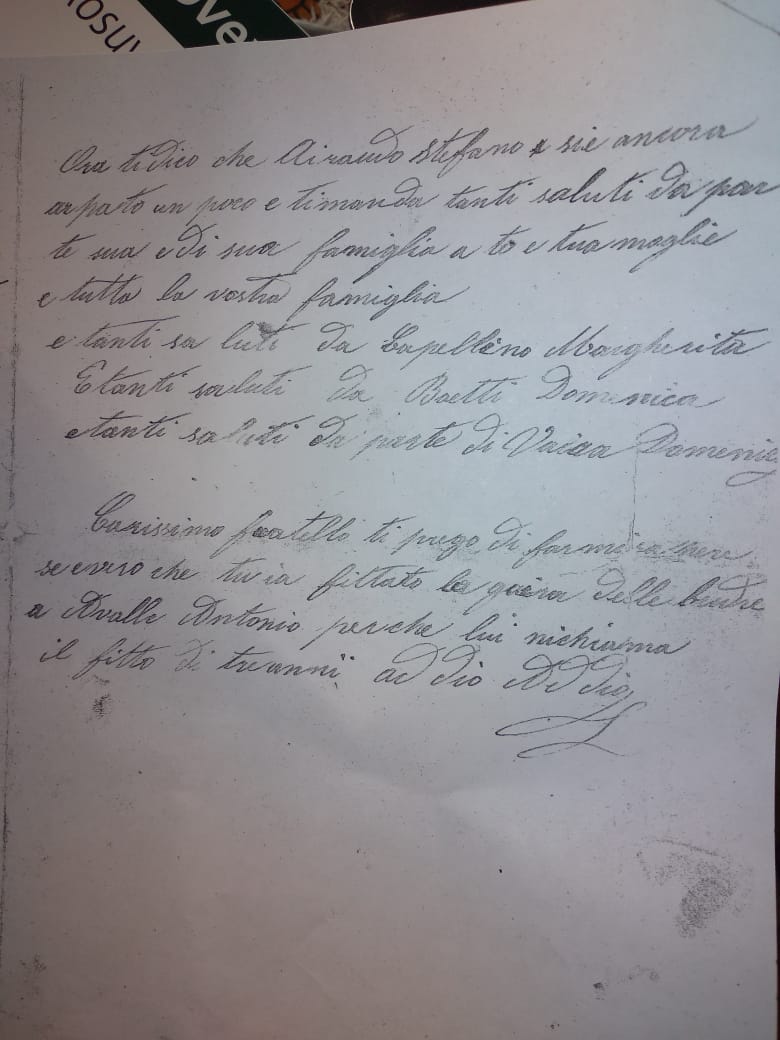 ove
nosu
Ora ti dico che Airaudo Stefano sie ancora
arpato un poco e timanda tanti saluti da par
te sua e di sua famiglia a te e tua moglie
e tutta la vostra famiglia
e tanti sa luti da Capellino Margherita
E tanti saluti da Baetti Domenica
e tanti saluti da parte di Domenic
Carissimo fratello ti prego di farmi sapere
se evero che tu ia fittato la delle
a Avalle Antonio perche lui nichiama
il fitto di treanni ad dio Ad dio